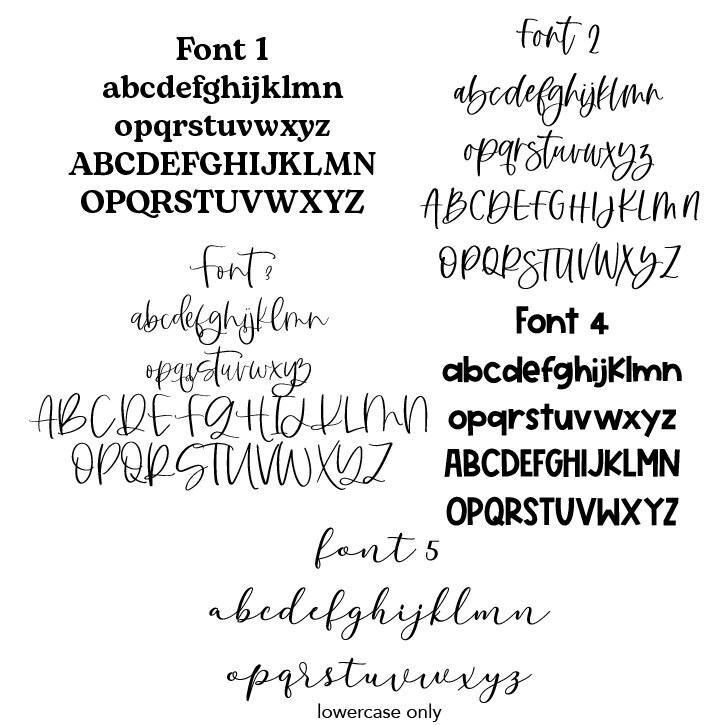 Font 1
abcdefghijklmn
opqrstuvwxyz
ABCDEFGHIJKLMN
OPQRSTUVWXYZ
Font 2
abcdefghijklmn
opqrstuvwxyz
ABCDEFGHIJKLMN
OPQRSTUVWXYZ
Font 3
abcdefghijklmn
opqrstuvwxyz
ABCDEFGHIJKLMN
OPQRSTUVWXYZ
Font 4
abcdefghijklmn
opqrstuvwxyz
ABCDEFGHIJKLMN
OPQRSTUVWXYZ
font 5
abcdefghijklmn
opqrstuvwxyz
lowercase only